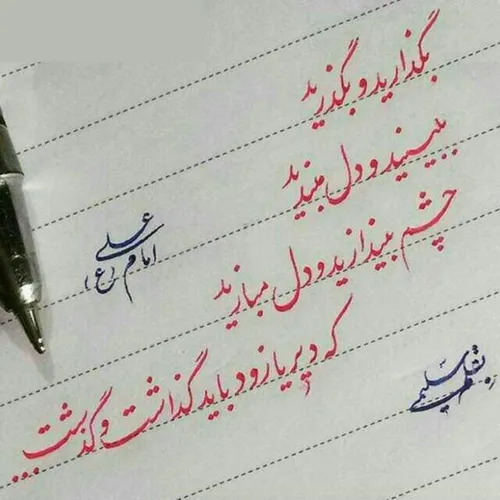 بگذارید و بگذرید
ببینید و دل مبندید
چشم بیندازید و دل مبازید
که دیر یا زود باید گذاشت و گذشت...
امام علی (ع)
بقلم سلیمی